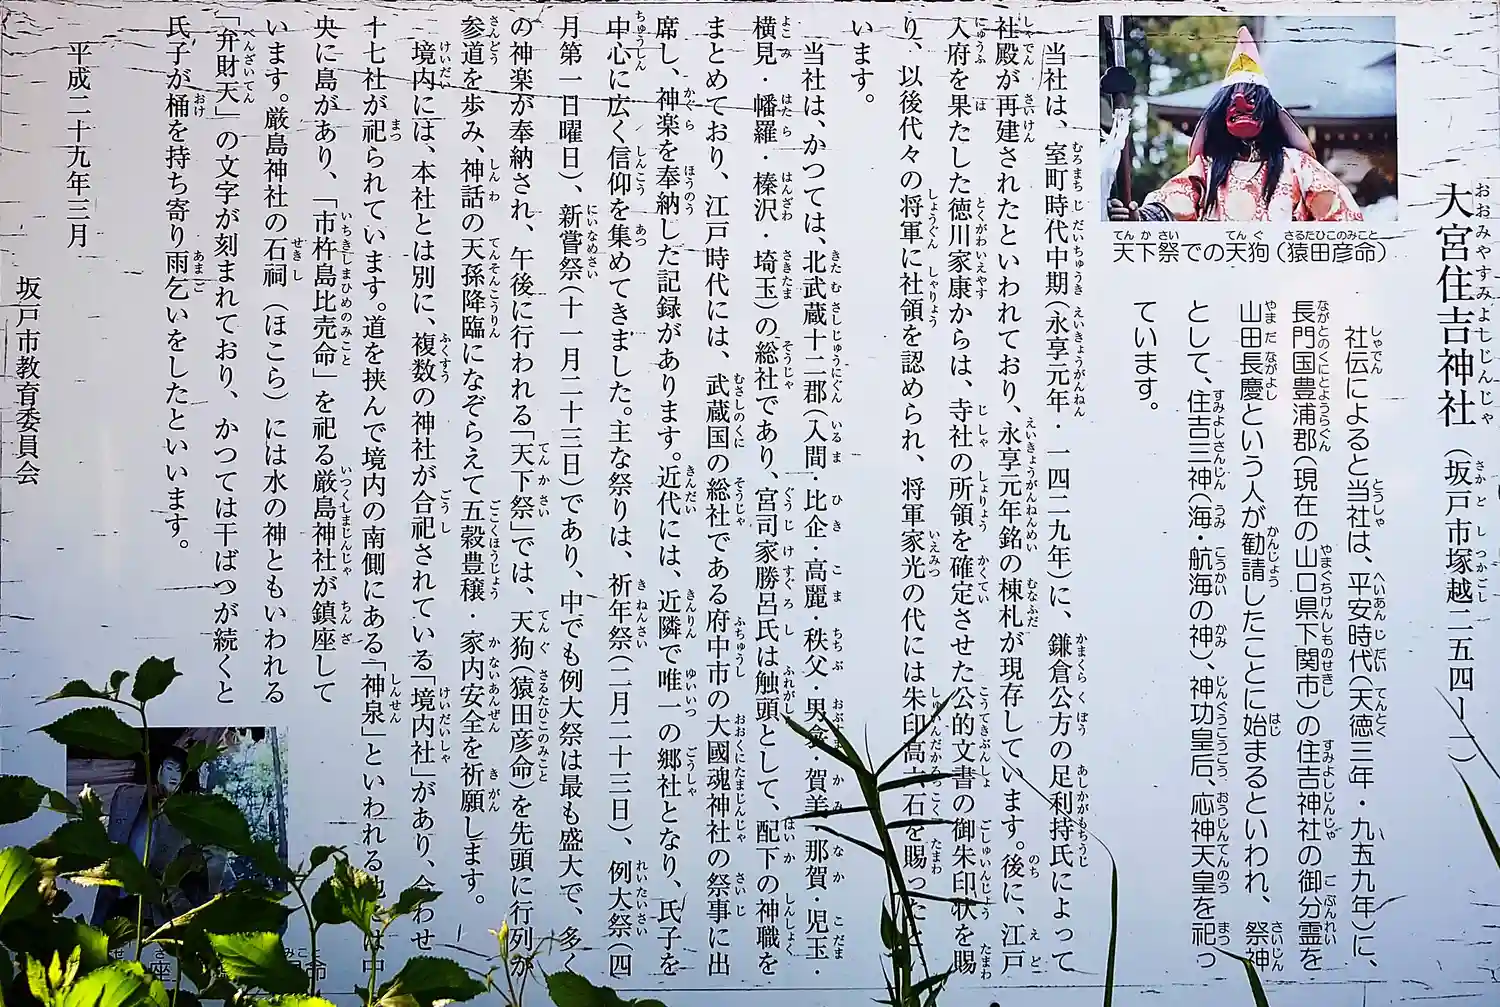 大宮住吉神社（坂戸市塚越二五四－一）
社伝によると当社は、平安時代（天徳三年・九五九年）に、
長門国豊浦郡（現在の山口県下関市）の住吉神社の御分霊を
山田長慶という人が勧請したことに始まるといわれ、祭神
として、住吉三神（海・航海の神）、神功皇后、応神天皇を祀っ
ています。
天下祭での天狗（猿田彦命）
当社は、室町時代中期（永享元年・一四二九年）に、鎌倉公方の足利持氏によって
社殿が再建されたといわれており、永享元年銘の棟札が現存しています。後に、江戸
入府を果たした徳川家康からは、寺社の所領を確定させた公的文書の御朱印状を賜
り、以後代々の将軍に社領を認められ、将軍家光の代には朱印高 石を賜った
います。
当社は、かつては、北武蔵十二郡（入間・比企・高麗・秩父・男衾・賀美・那賀・児玉・
横見・幡羅・榛沢・埼玉）の総社であり、宮司家勝呂氏は触頭として、配下の神職を
まとめており、江戸時代には、武蔵国の総社である府中市の大國魂神社の祭事に出
席し、神楽を奉納した記録があります。近代には、近隣で唯一の郷社となり、氏子を
中心に広く信仰を集めてきました。主な祭りは、祈年祭（二月二十三日）、例大祭（四
月第一日曜日）、新嘗祭（十一月二十三日）であり、中でも例大祭は最も盛大で、多く
の神楽が奉納され、午後に行われる「天下祭」では、天狗（猿田彦命）を先頭に行列が
参道を歩み、神話の天孫降臨になぞらえて五穀豊穣・家内安全を祈願します。
境内には、本社とは別に、複数の神社が合祀されている「境内社」があり、合わせ
十七社が祀られています。道を挟んで境内の南側にある「神泉」といわれる は中
央に島があり、「市杵島比売命」を祀る厳島神社が鎮座して
います。厳島神社の石祠（ほこら）には水の神ともいわれる
「弁財天」の文字が刻まれており、かつては干ばつが続くと
氏子が桶を持ち寄り雨乞いをしたといいます。
平成二十九年三月
坂戸市教育委員会
座
命